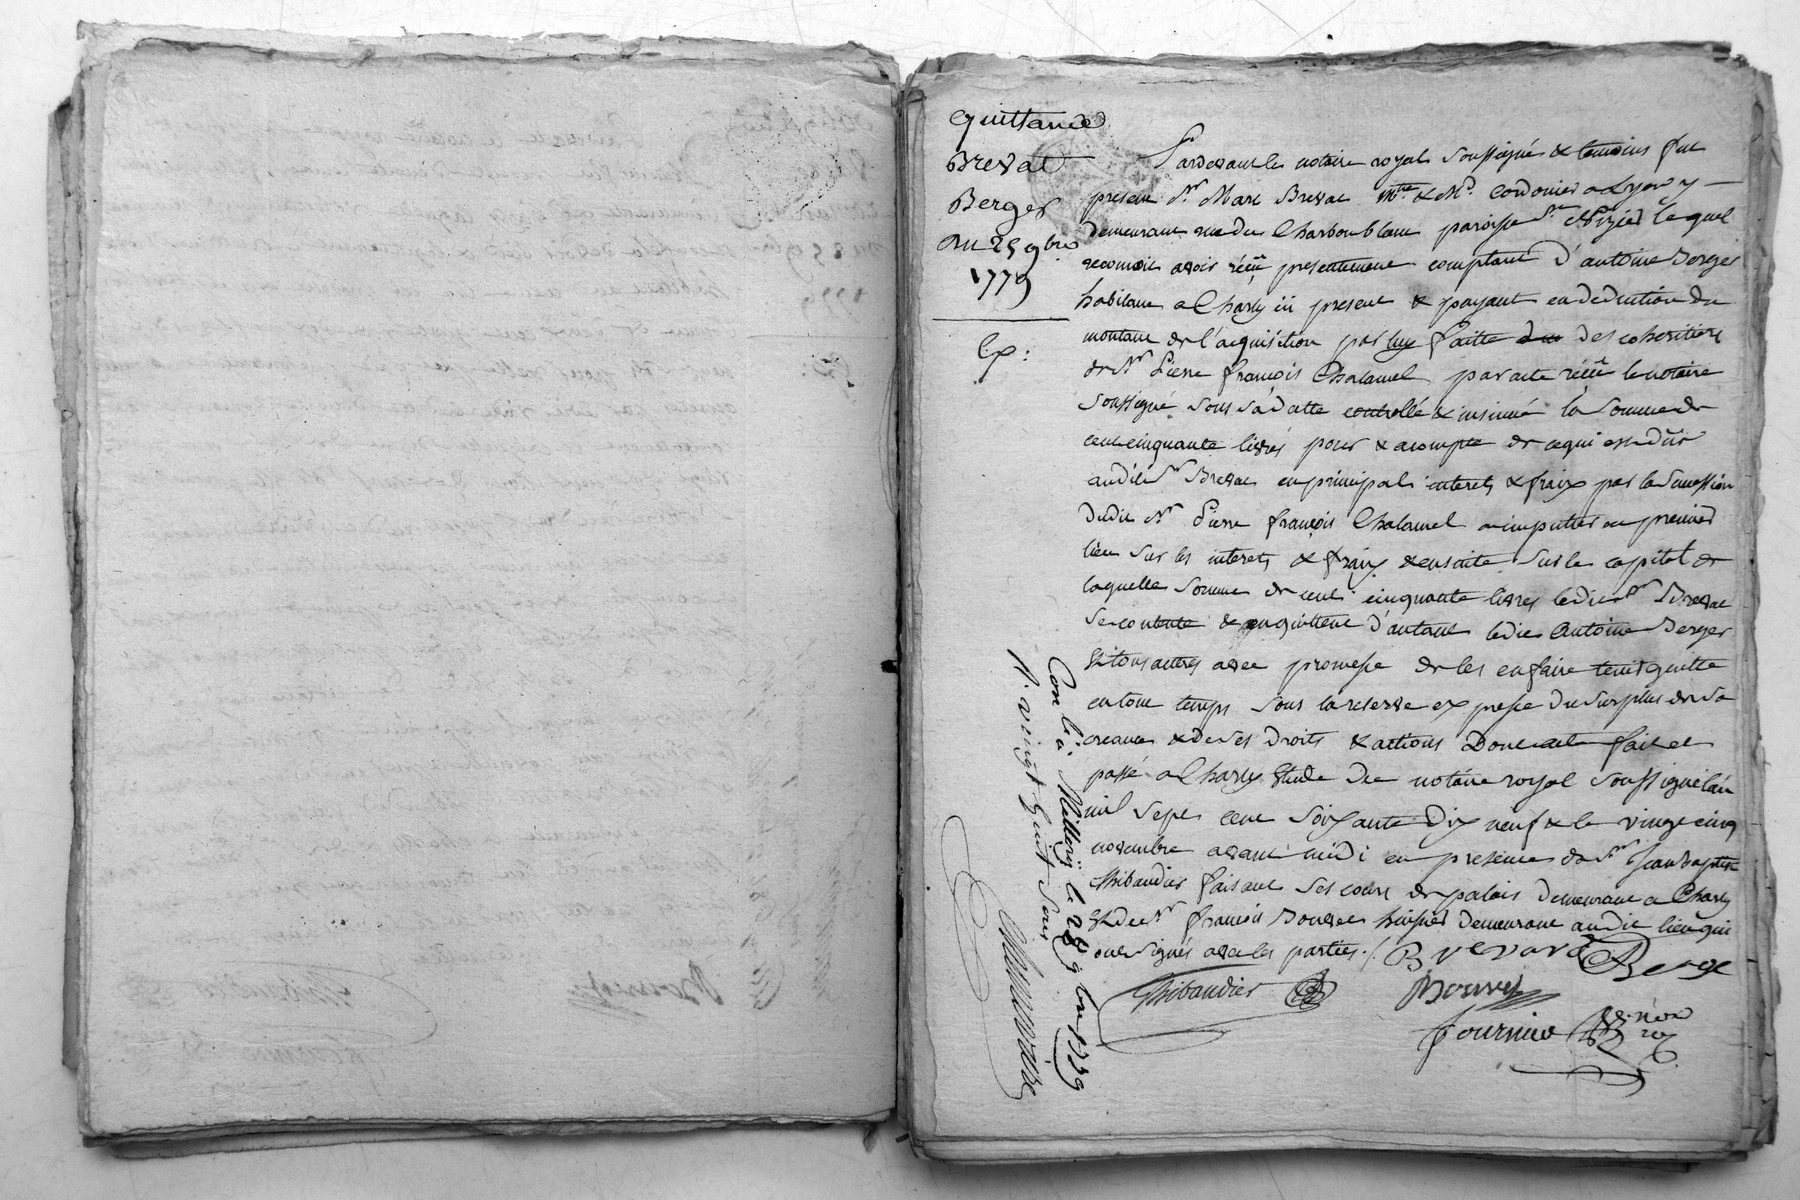 quittance
Brevat
Berger
Du 25 9bre
1779
Ex:
Pardevant le notaire royal soussigné & temoins fut
present Sr. Marc Brevat Mtre & Md. Cordonier a Lyon y
demeurant rue du Charbon blanc paroisse St Nizier lequel
reconnoit avoir reçû presentement comptant d'antoine Berger
habitant a Charly ici present & payant en deduction du
montant de l'acquisition par luy faitte des coheritiers
de Sr Pierre françois Chalamel par acte reçû le notaire
soussigné sous sa datte controllé & insinué la somme de
cent cinquante livres pour & acompte de ce qui est dûë
audit Sr Brevat en principal interets & fraix par la succession
dudit Sr Pierre françois Chalamel a imputer au premier
lieu sur les interets & fraix & ensuite sur le capital de
laquelle somme de cent cinquante livres ledit Sr Brevat
se contente & en quitte d'autant ledit Antoine Berger
Et tous autres avec promesse de les en faire tenir quitte
en tout temps sous la reserve expresse du surplus de sa
creance & de ses droits & actions Dont acte fait et
passé a Charly Etude du notaire royal soussigné l'an
mil sept cent soixante dix neuf & le vingt cinq
novembre avant midi en presence de Sr Jean baptiste
Thibaudier faisant ses cours de palais demeurant a Charly
Et de Sr françois Bouvet huissier demeurant audit lieu qui
ont signés avec les parties ./.
Brevard Berge
Thibaudier Bouvet
fournier nère
roy
Con lé a Millery le 28 9bre 1779
R. vingt huit sous